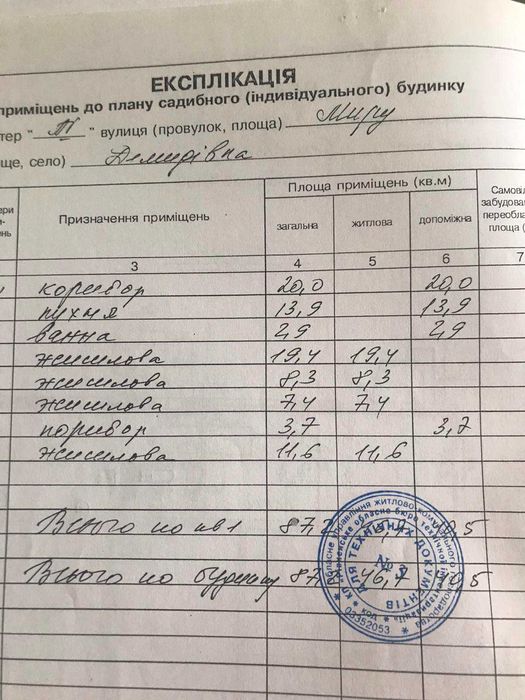 ЕКСПЛІКАЦІЯ
приміщень до плану садибного (індивідуального) будинку
тер " П " вулиця (провулок, площа) Миру
ще, село) Демидівка
Призначення приміщень
Площа приміщень (кв.м)
загальна житлова допоміжна
Самов
забудова
переобла
площа (
3 4 5 6 7
коридор 20,0 20,0
кухня 13,9 13,9
ванна 2,9 2,9
житлова 19,4 19,4
житлова 8,3 8,3
житлова 7,4 7,4
коридор 3,7 3,7
житлова 11,6 11,6
Всього по кв1 87,2
Всього по будинку 87 46,7 40,5
ДЛЯ ТЕХНІЧНИХ ДОКУМЕНТІВ
№ 3
код
03352053